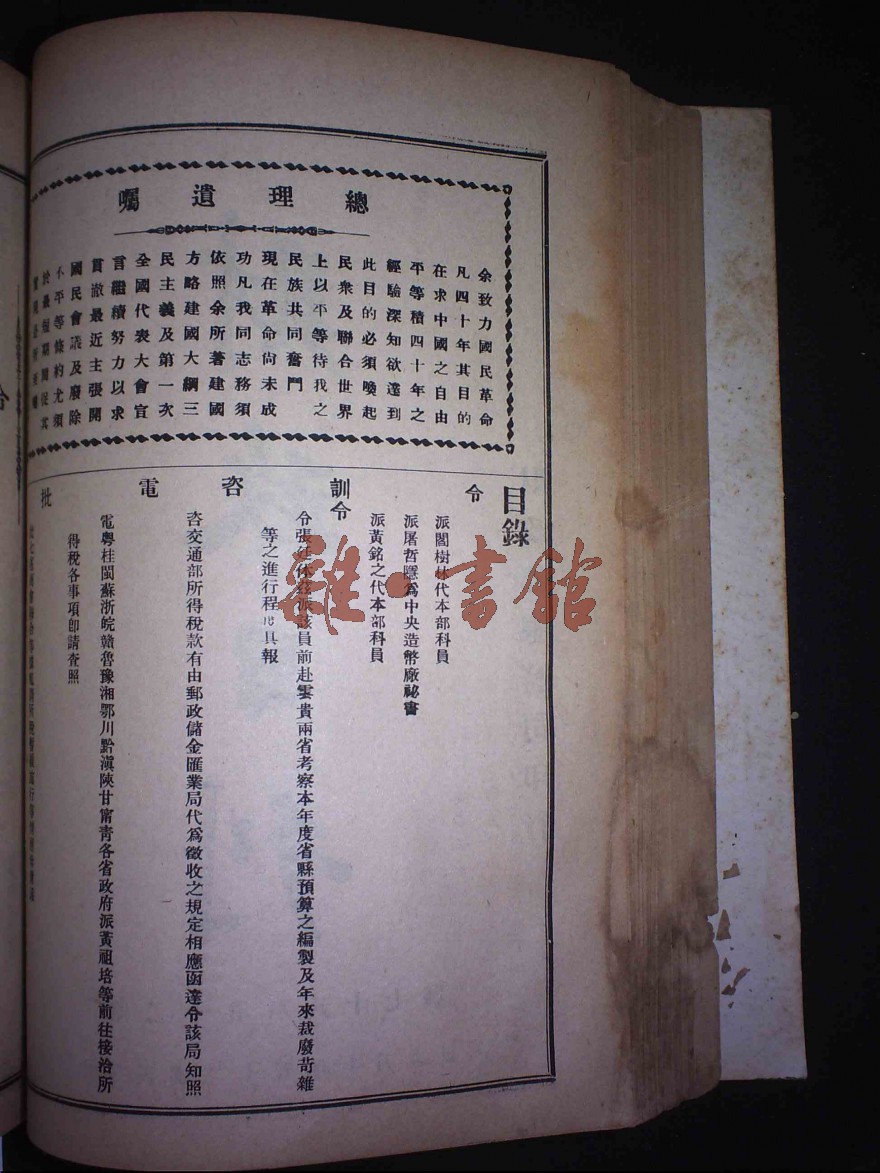 總理遺囑
余致力國民革命
凡四十年其目的
在求中國之自由
平等積四十年之
經驗深知欲達到
此目的必須喚起
民衆及聯合世界
上以平等待我之
民族共同奮鬥
現在革命尚未成
功凡我同志務須
依照余所著建國
方略建國大綱三
民主義及第一次
全國代表大會宣
言繼續努力以求
貫澈最近主張開
國民會議及廢除
不平等條約尤須
於最短期間促其
目錄
令
派閻樹林代本部科員
派屠哲隱爲中央造幣廠祕書
派黃銘之代本部科員
訓令
令張 茲派該員前赴雲貴兩省考察本年度省縣預算之編製及年來裁廢苛雜
等之進行程度具報
咨
咨交通部所得稅款有由郵政儲金匯業局代爲徵收之規定相應函達令該局知照
電
電粵桂閩蘇浙皖贛魯豫湘鄂川黔滇陝甘甯青各省政府派黃祖培等前往接洽所
得稅各事項卽請查照
批
雜·書館